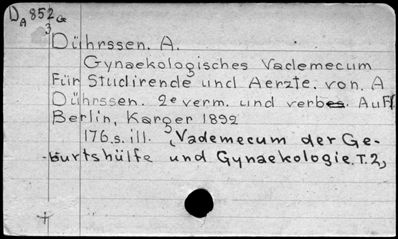 DA 852 Ge
3
Dührssen. A.
Gynaekologisches Vademecum
für Studirende und Aerzte. von. A
Dührssen. 2e verm. und verbes. Aufl.
Berlin, Karger 1892
176.s. ill. „Vademecum der Ge-
burtshülfe und Gynaekologie. T. 2„